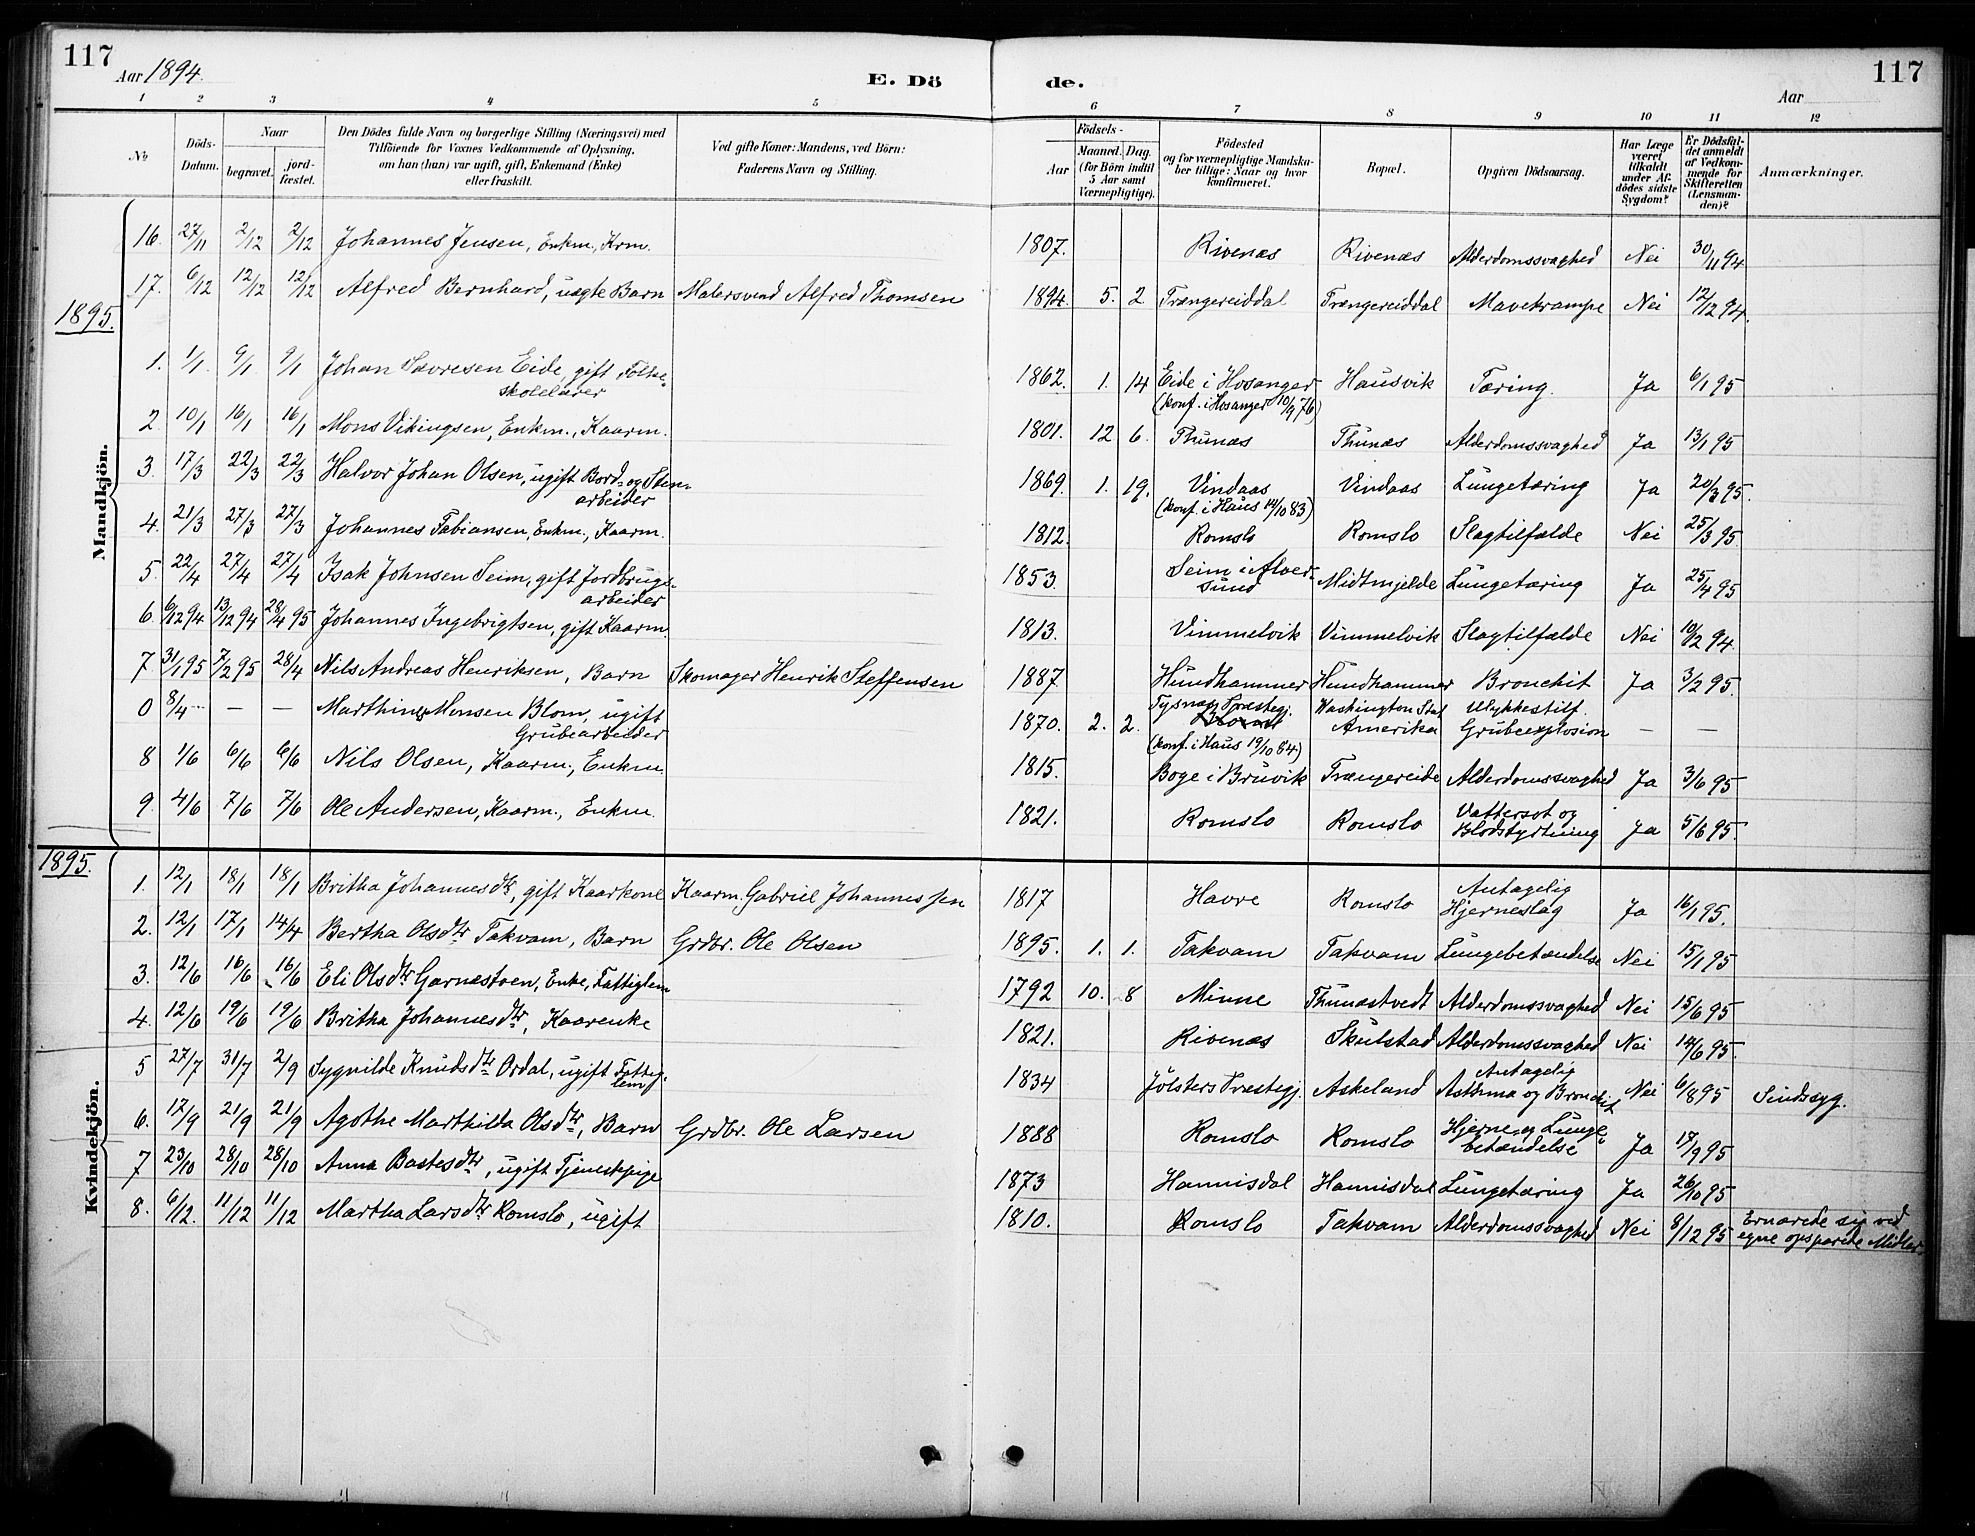 117
Aar 1894.
E. Dö
de.
Aar
117
1 2 3 4 5 6 7 8 9 10 11 12
No
Döds-Datum.
Naar
begravet.
jord-fæstet.
Den Dödes fulde Navn og borgerlige Stilling (Næringsvei) med
Tilföiende for Voxnes Vedkommende af Oplysning,
om han (hun) var ugift, gift, Enkemand (Enke)
eller fraskilt.
Ved gifte Koner: Mandens, ved Börn:
Faderens Navn og Stilling.
Födsels-
Aar
Maaned. Dag.
(for Börn indtil
5 Aar samt
Værnepligtige).
Födested
og for værnepligtige Mandska-
ber tillige: Naar og hvor
konfirmeret.
Bopæl.
Opgiven Dödsaarsag.
Har Læge
været
tilkaldt
under Af-
dödes sidste
Sygdom?
Er Dödsfal-
det anmeldt
af Vedkom-
mende for
Skifteretten
(Lensman-
den)?
Anmærkninger.
Mandkjön.
16. 27/11 2/12 2/12 Johannes Jensen, Enkm., Krm. 1807. Rivenæs Rivenæs Alderdomssvaghed Nei 30/11 94
17. 6/12 12/12 12/12 Alfred Bernhard, uægte Barn Malersvend Alfred Thomsen 1894. 5. 2 Trængereiddal Trængereiddal Mavekrampe Nei 12/12 94.
1895.
1. 1/1 9/1 9/1 Johan Sævresen Eide, gift Folke-
skolelærer 1862. 1. 14 Eide i Hosanger Hausvik Tæring. Ja 6/1 95
(konf. i Hosanger 10/9 76)
2. 10/1 16/1 16/1 Mons Vikingsen, Enkm., Kaarm. 1801. 12 6. Thunæs Thunæs Alderdomssvaghed Ja 13/1 95
3. 17/3 22/3 22/3 Halvor Johan Olsen, ugift Bord- og Sten-
arbeider 1869. 1. 19. Vindaas Vindaas Lungetæring Ja 20/3 95.
(konf. i Haus 14/10 83)
4. 21/3 27/3 27/3 Johannes Fabiansen, Enkm., Kaarm. 1812. Romslo Romslo Slagtilfælde Nei 25/3 95.
5. 22/4 27/4 27/4 Isak Johnsen Seim, gift Jordbrugs-
arbeider 1853. Seim i Alver-
sund Midtmjelde Lungetæring Ja 25/4 95
6. 6/12 94 13/12 94 28/4 95 Johannes Ingebrigtsen, gift Kaarm. 1813. Vimmelvik Vimmelvik Slagtilfælde Nei 10/12 94.
7 31/1 95 7/2 95 28/4 Nils Andreas Henriksen, Barn Skomager Henrik Steffensen 1887 Hundhammer Hundhammer Bronchit Ja 3/2 95.
0 8/4 — — Marthinus Monsen Blom, ugift
Grubearbeider 1870. 2. 2. Tysnæs Præstegj. Washington Stat
Amerika Ulykkestilf.
Grubeexplosion — —
(konf. i Haus 19/10 84)
8 1/6 6/6 6/6 Nils Olsen, Kaarm., Enkm. 1815. Boge i Bruvik Trængereide Alderdomssvaghed Ja 3/6 95
9. 4/6 7/6 7/6 Ole Andersen, Kaarm., Enkm. 1821. Romslo Romslo Vattersot og
Blodstyrtning Ja 5/6 95.
1895.
Kvindekjön.
1. 12/1 18/1 18/1 Britha Johannesdtr, gift Kaarkone Kaarm. Gabriel Johannessen 1817 Havre Romslo Antagelig
Hjerneslag Ja 16/1 95.
2. 12/1 17/1 14/4 Bertha Olsdtr Takvam, Barn Grdbr. Ole Olsen 1895. 1. 1. Takvam Takvam Lungebetændelse Nei 15/1 95
3. 12/6 16/6 16/6 Eli Olsdtr Garnæstoen, Enke, Fattiglem 1792 10. 8 Minne Thunæstvedt Alderdomssvaghed Nei 15/6 95
4. 12/6 19/6 19/6 Britha Johannesdtr, Kaarenke 1821. Rivenæs Skulstad Alderdomssvaghed Nei 14/6 95.
5 27/7 31/7 2/9 Sygnilde Knudsdtr Ordal, ugift Fattig-
lem 1834 Jölsters Præstegj. Askeland Antagelig
Asthma og Bronchit Nei 6/8 95 Sindssyg.
6. 17/9 21/9 21/9 Agothe Marthilda Olsdtr, Barn Grdbr. Ole Larsen 1888 Romslo Romslo Hjerne- og Lunge-
betændelse Ja 17/9 95
7 23/10 28/10 28/10 Anna Bastesdtr, ugift Tjenestpige 1873 Hannisdal Hannisdal Lungetæring Ja 26/10 95
8. 6/12. 11/12 11/12 Martha Larsdtr Romslo, ugift 1810. Romslo Takvam Alderdomssvaghed Nei 8/12 95 Ernærede sig ved
egne opsparede Midler.